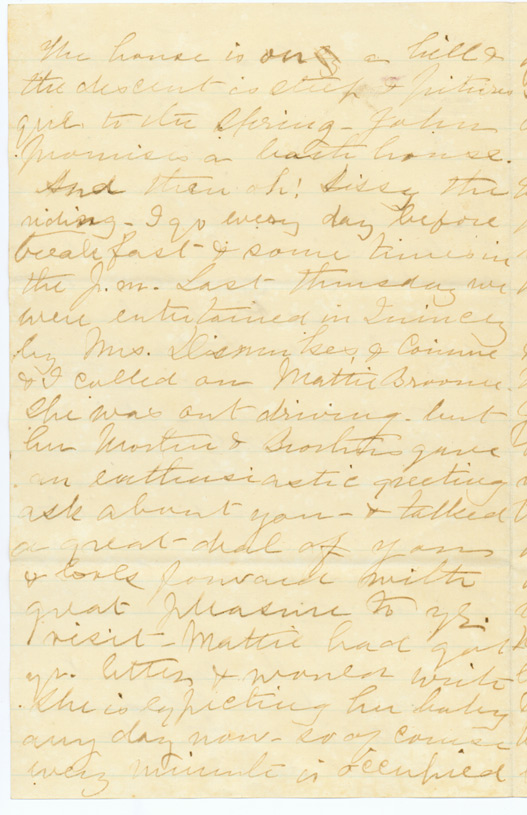 The house is on a hill &
the descent is steep & pictures
que to the Spring - John
promises a bath house.
And then oh! Sissy the
riding - I go every day before
breakfast & some times in
the P.m. Last Thursday we
were entertained in Quincy
by Mrs. Dismukes, & Corinne
& I called on Mattie Broome
She was out driving - but
her Mother & Brothers gave
an enthusiastic greeting
ask about you - & talked
a great deal of you
& look forward with
great pleasure to yr.
visit - Mattie had got
yr. letter & would write
She is expecting her baby
any day now - so of course
every minute is occupied